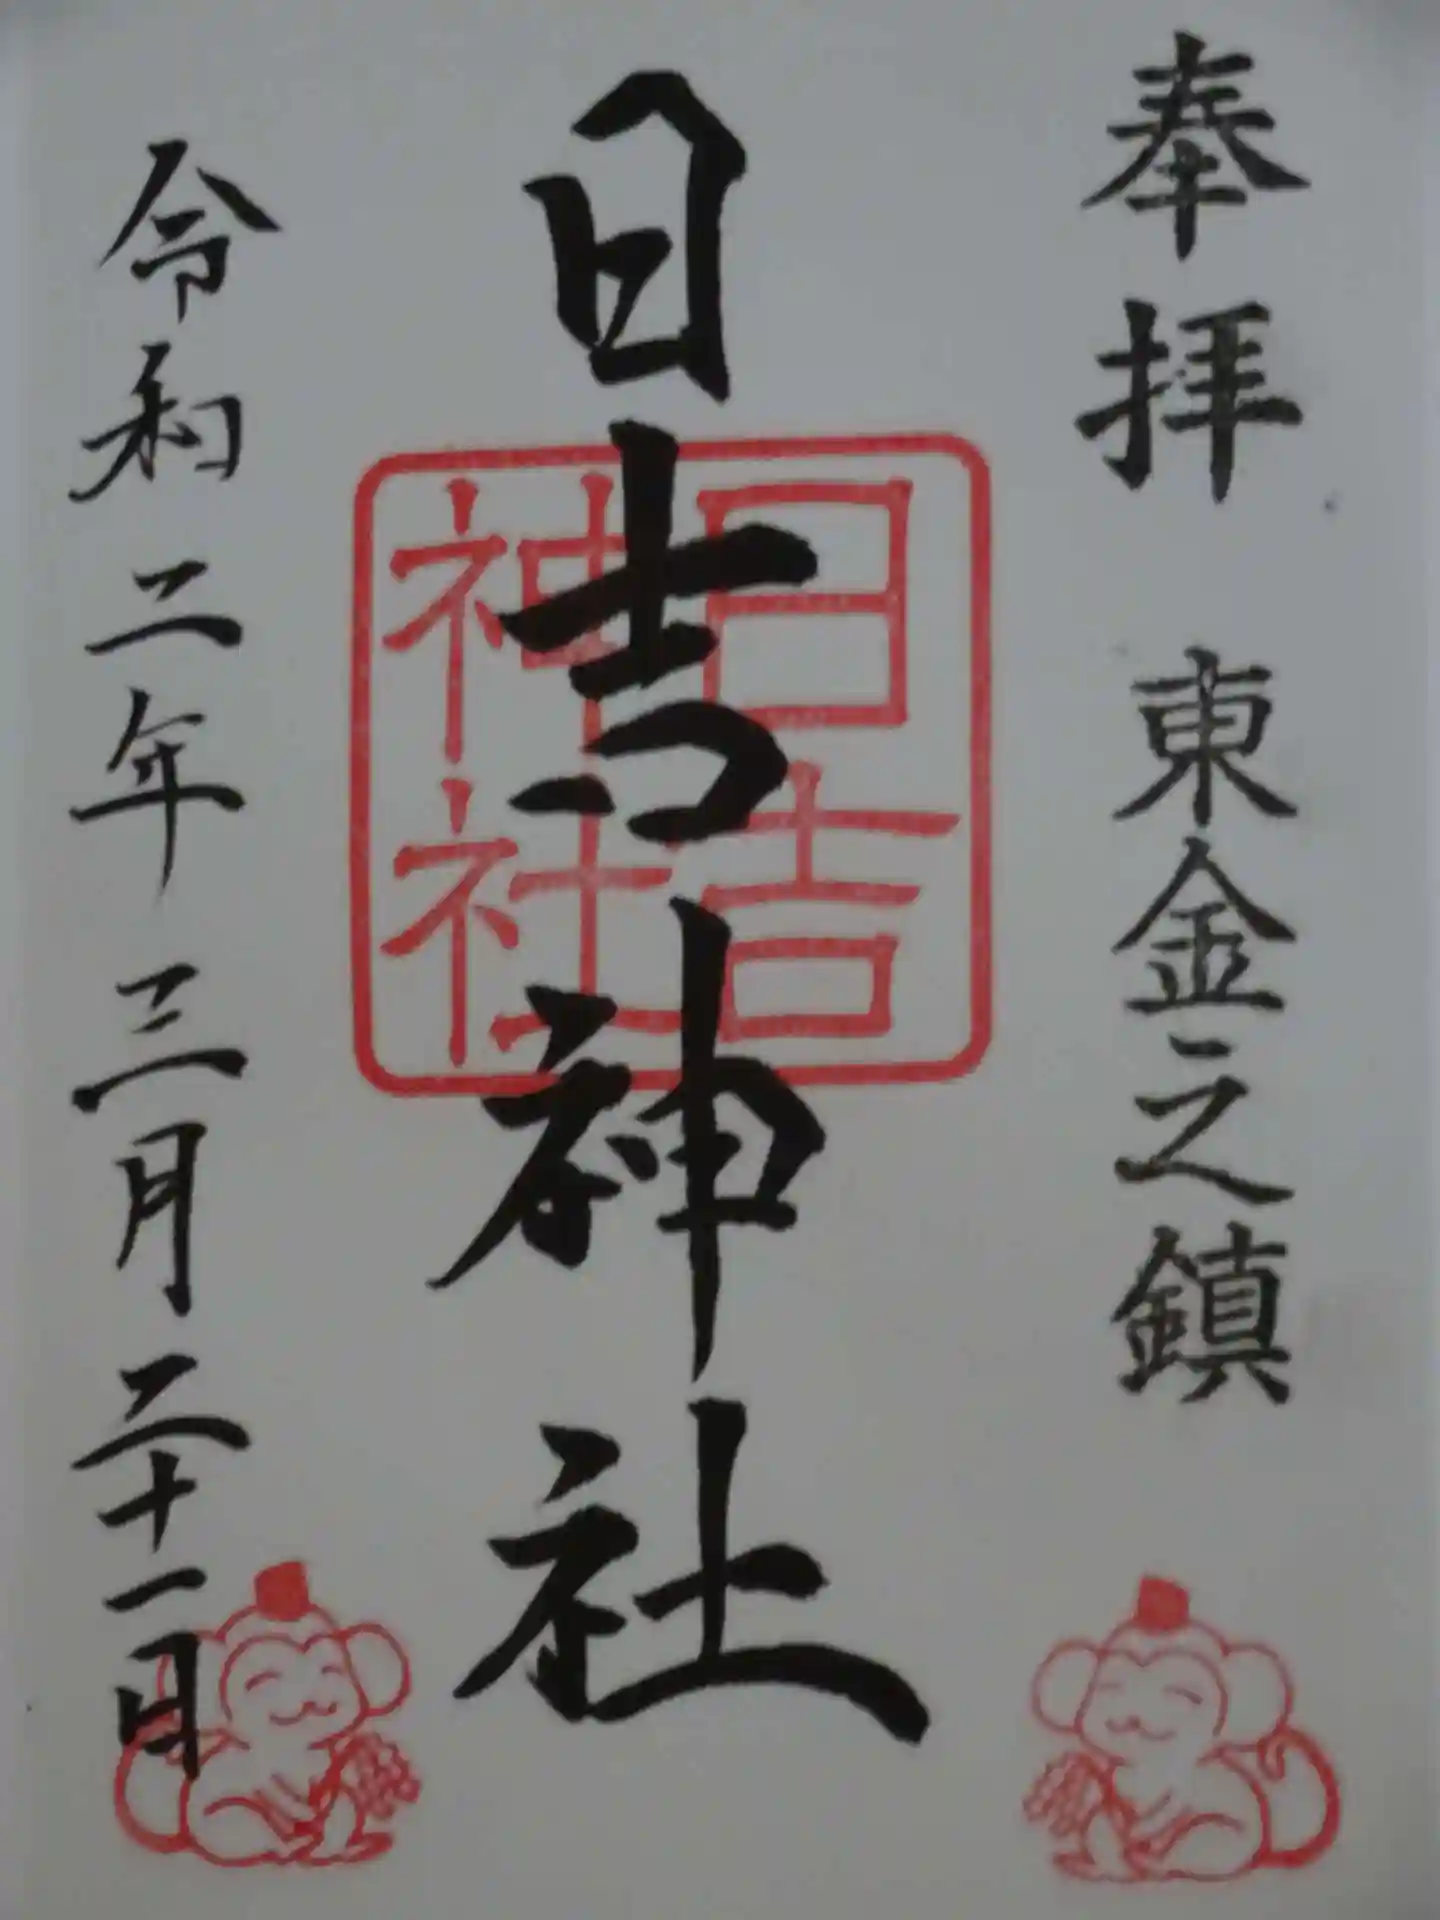 奉拝 東金之鎮
日吉神社
日吉
神社
令和二年三月二十一日